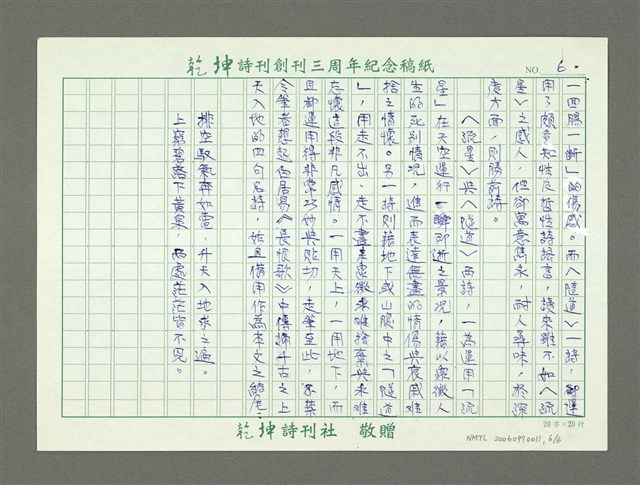 乾坤詩刊創刊三周年紀念稿紙
NO. 6.
一四腸一斷」的傷感。而〈隧道〉一詩，卻運
用了頗多知性及哲性詩語言，讀來雖不如〈流
星〉之感人，但卻寓意雋永，耐人尋味，於深
度方面，則勝前詩。
〈流星〉與〈隧道〉兩詩，一為運用「流
星」在天空運行一瞬即逝之景況，藉以象徵人
生的死別情況，進而表達無盡的情傷與哀戚難
捨之情懷。另一詩則藉地下或山腹中之「隧道
」，用走不出、走不盡來象徵永難捨棄與永難
忘懷這段非凡感情。一用天上，一用地下，而
且都運用得非常巧妙與貼切，走筆至此，不禁
令筆者想起白居易《長恨歌》中傳誦千古之上
天入地的四句名詩，姑且借用作為本文之結尾：
排空馭氣奔如電，升天入地求之遍。
上窮碧落下黃泉，兩處茫茫皆不見。
20字×20行
乾坤詩刊社 敬贈
NMTL 20060970011, 6/6